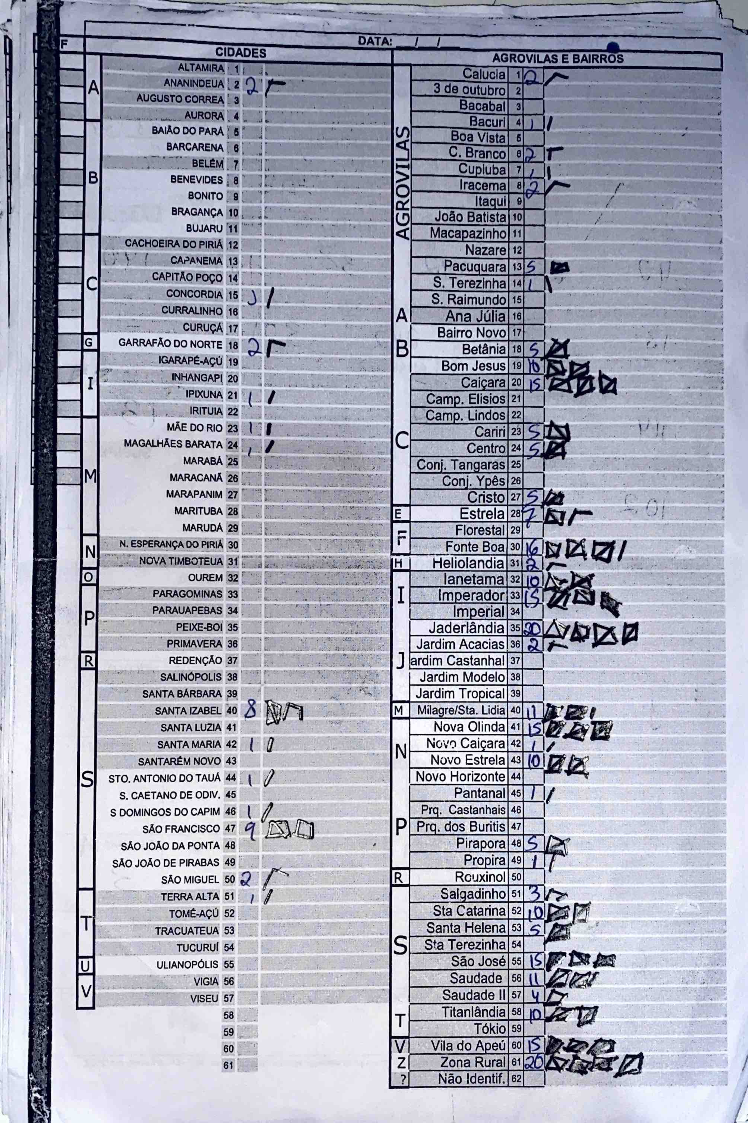 F
DATA: / /
CIDADES
A
ALTAMIRA 1
ANANINDEUA 2 2
AUGUSTO CORREA 3
AURORA 4
B
BAIÃO DO PARÁ 5
BARCARENA 6
BELÉM 7
BENEVIDES 8
BONITO 9
BRAGANÇA 10
BUJARU 11
C
CACHOEIRA DO PIRIÁ 12
CAPANEMA 13
CAPITÃO POÇO 14
CONCORDIA 15
CURRALINHO 16
CURUÇÁ 17
G
GARRAFÃO DO NORTE 18 2
I
IGARAPÉ-AÇÚ 19
INHANGAPI 20
IPIXUNA 21 1
IRITUIA 22
M
MÃE DO RIO 23 1
MAGALHÃES BARATA 24 1
MARABÁ 25
MARACANÃ 26
MARAPANIM 27
MARITUBA 28
MARUDÁ 29
N
N. ESPERANÇA DO PIRIÁ 30
NOVA TIMBOTEUA 31
O
OUREM 32
P
PARAGOMINAS 33
PARAUAPEBAS 34
PEIXE-BOI 35
PRIMAVERA 36
R
REDENÇÃO 37
S
SALINÓPOLIS 38
SANTA BÁRBARA 39
SANTA IZABEL 40 8
SANTA LUZIA 41
SANTA MARIA 42 1
SANTARÉM NOVO 43
STO. ANTONIO DO TAUÁ 44 1
S. CAETANO DE ODIV. 45
S DOMINGOS DO CAPIM 46 1
SÃO FRANCISCO 47 9
SÃO JOÃO DA PONTA 48
SÃO JOÃO DE PIRABAS 49
SÃO MIGUEL 50 2
T
TERRA ALTA 51 1
TOMÉ-AÇÚ 52
TRACUATEUA 53
TUCURUÍ 54
U
ULIANÓPOLIS 55
V
VIGIA 56
VISEU 57
58
59
60
61
AGROVILAS E BAIRROS
AGROVILAS
Calucia 1 2
3 de outubro 2
Bacabal 3
Bacuri 4 1
Boa Vista 5
C. Branco 6 2
Cupiuba 7 1
Iracema 8 2
Itaqui 9
João Batista 10
Macapazinho 11
Nazare 12
Pacuquara 13 5
S. Terezinha 14 1
S. Raimundo 15
A
Ana Júlia 16
B
Bairro Novo 17
Betânia 18 5
Bom Jesus 19 10
C
Caiçara 20 15
Camp. Elisios 21
Camp. Lindos 22
Cariri 23 5
Centro 24 5
Conj. Tangaras 25
Conj. Ypês 26
Cristo 27 5
E
Estrela 28 7
F
Florestal 29
Fonte Boa 30 16
H
Heliolandia 31 2
I
Ianetama 32 10
Imperador 33 15
Imperial 34
J
Jaderlândia 35 20
Jardim Acacias 36 2
Jardim Castanhal 37
Jardim Modelo 38
Jardim Tropical 39
M
Milagre/Sta. Lidia 40 11
N
Nova Olinda 41 15
Novo Caiçara 42 1
Novo Estrela 43 10
Novo Horizonte 44
P
Pantanal 45 1
Prq. Castanhais 46
Prq. dos Buritis 47
Pirapora 48 5
Propira 49 1
R
Rouxinol 50
S
Salgadinho 51 3
Sta Catarina 52 10
Santa Helena 53 5
Sta Terezinha 54
São José 55 15
Saudade 56 11
Saudade II 57 4
T
Titanlândia 58 10
Tókio 59
V
Vila do Apeú 60 15
Z
Zona Rural 61 20
?
Não Identif. 62